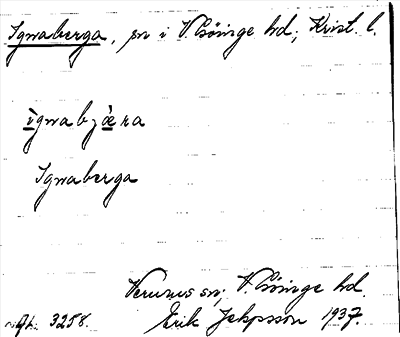 Ignaberga, sn i V. Göinge hd; Krist. l.
ìgnabʒæ̀ra
Ignaberga
Verums sn; V. Göinge hd.
Erik Jeppsson 1937.
3258.